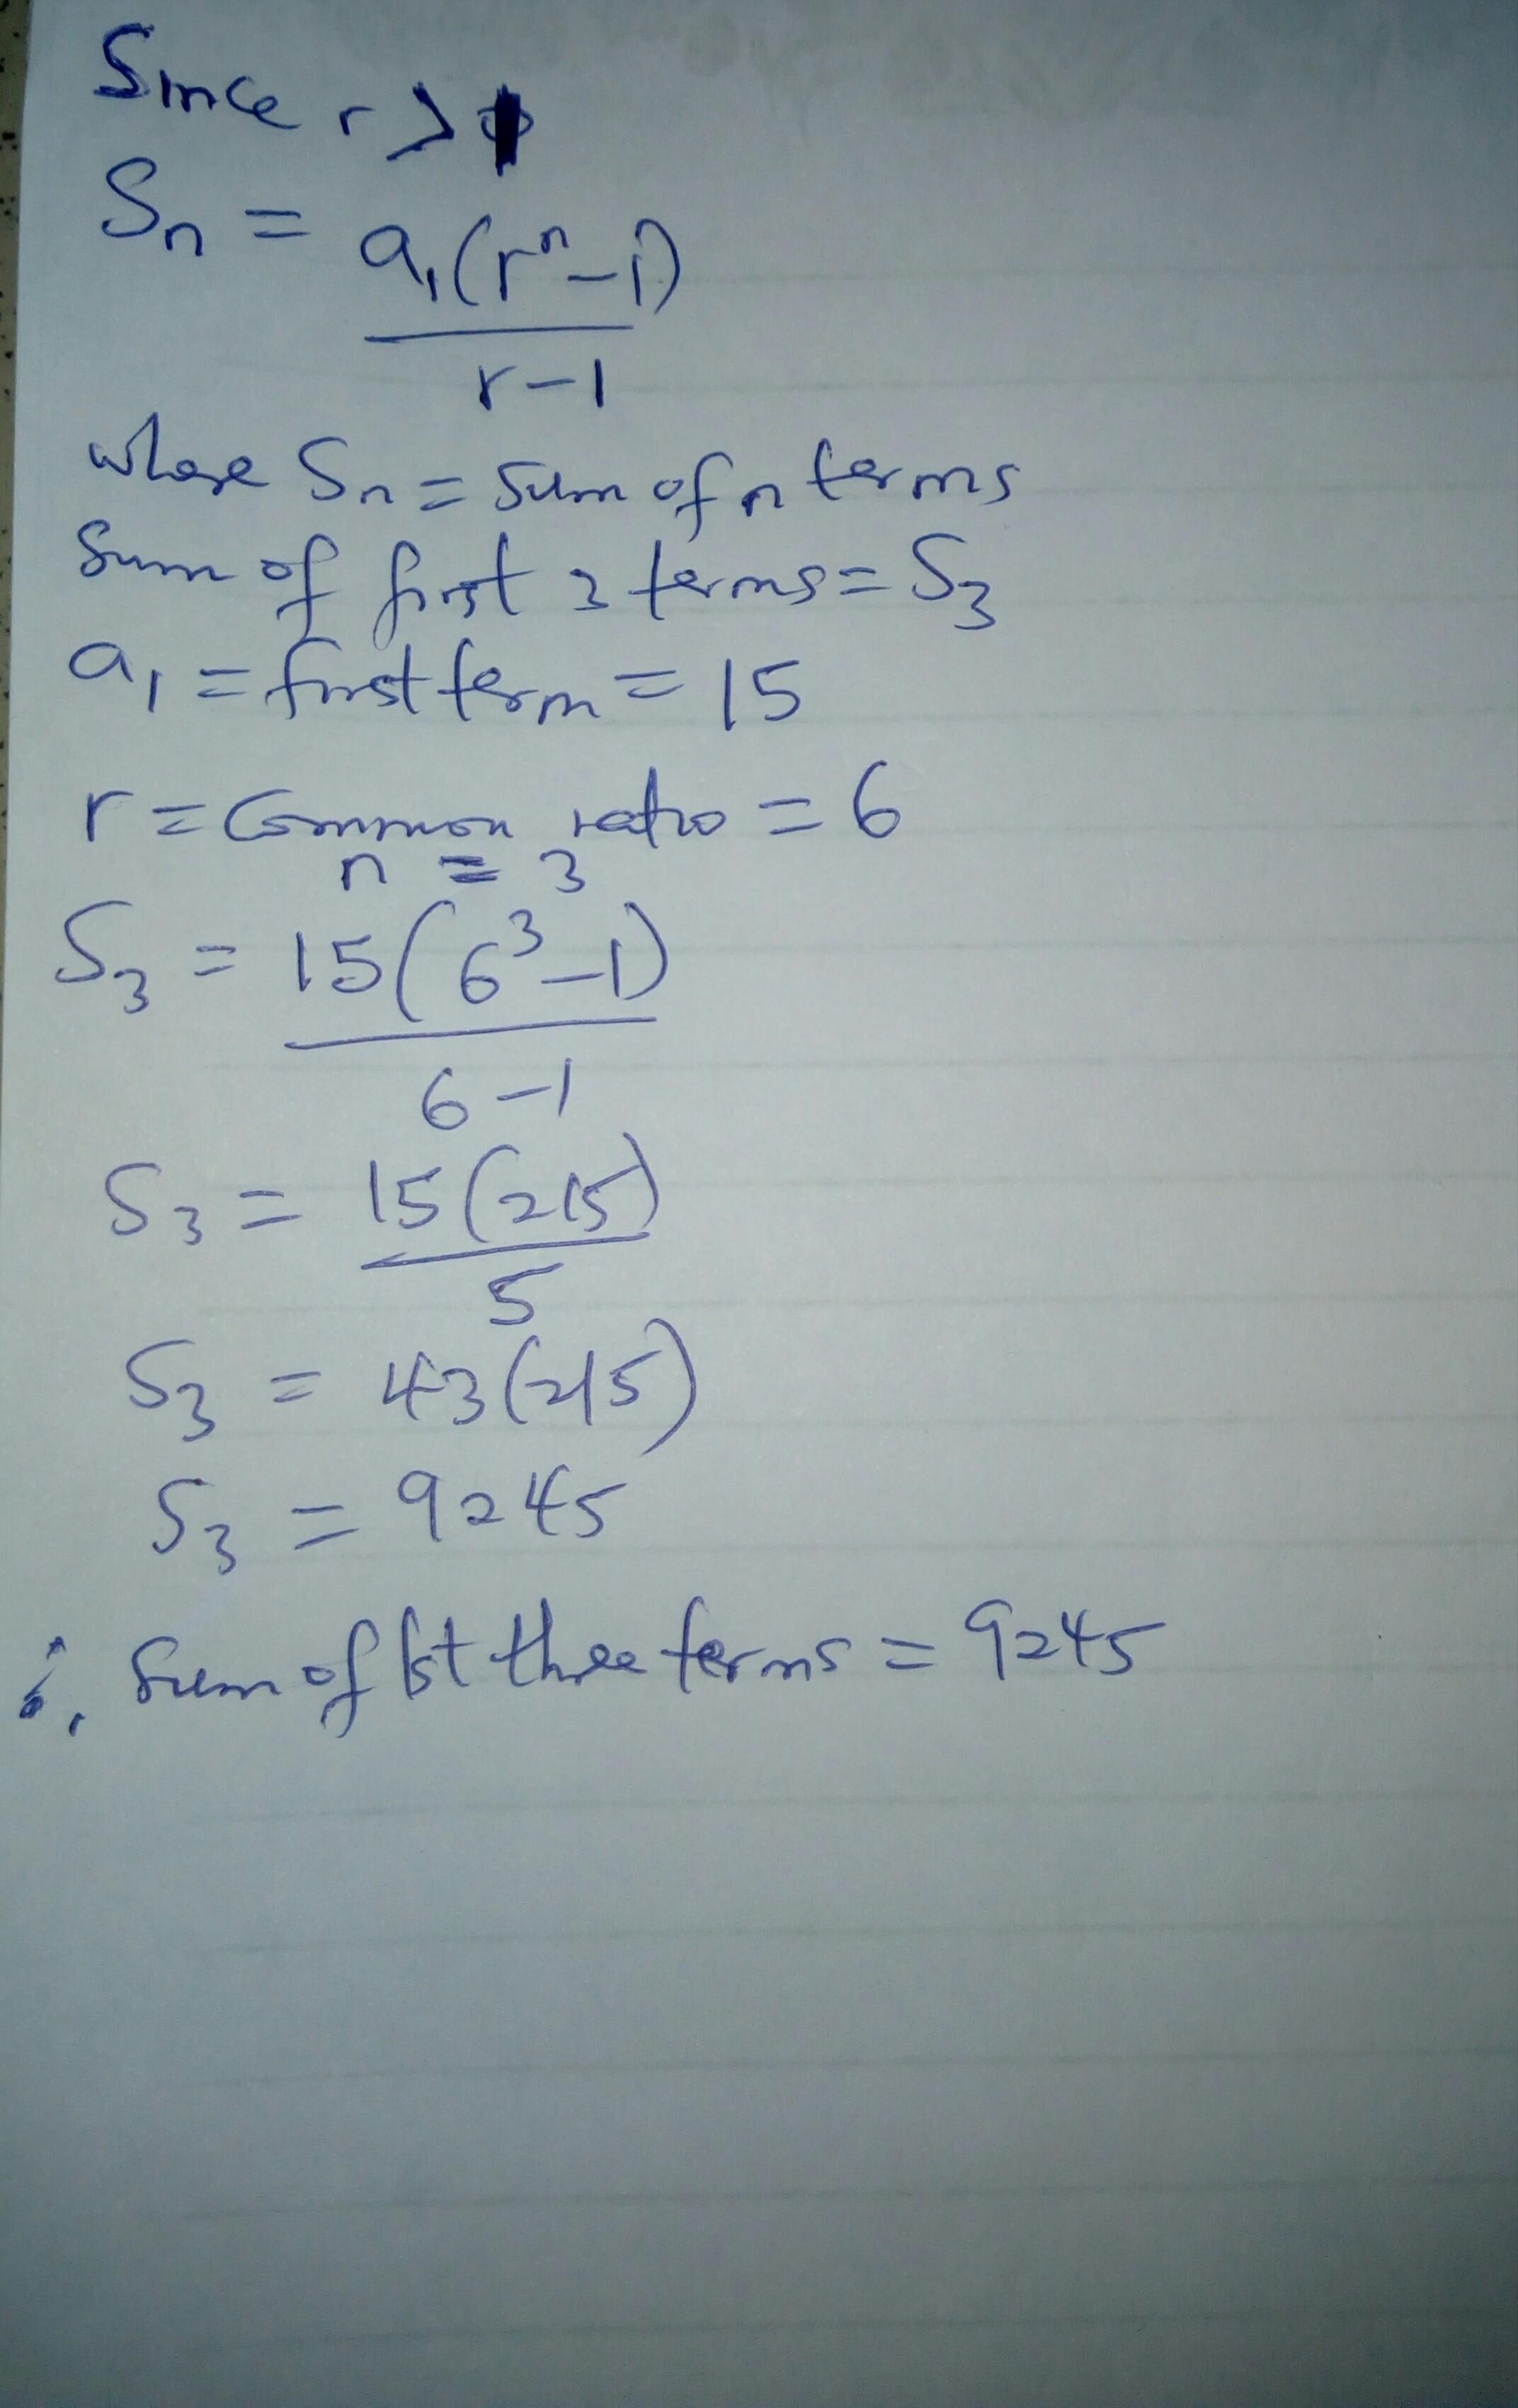 Since r > 1
Sn = a1(r^n-1)
r-1
where Sn = sum of n terms
Sum of first 3 terms = S3
a1 = first term = 15
r = Common ratio = 6
n = 3
S3 = 15(6^3-1)
6-1
S3 = 15(215)
5
S3 = 43(215)
S3 = 9245
∴ Sum of 1st three terms = 9245